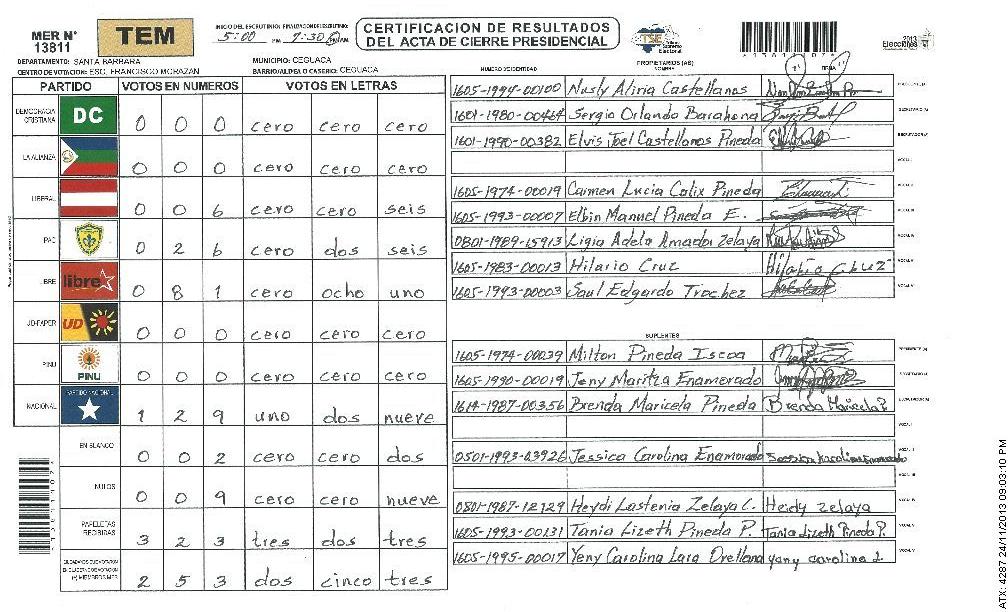 MER N° 13811
TEM
INICIO DEL ESCRUTINIO: FINALIZACION DEL ESCRUTINIO:
5:00 PM 7:30 PM
CERTIFICACION DE RESULTADOS
DEL ACTA DE CIERRE PRESIDENCIAL
TSE Tribunal Supremo Electoral
2013
Elecciones
DEPARTAMENTO: SANTA BARBARA
MUNICIPIO: CEGUACA
CENTRO DE VOTACION: ESC. FRANCISCO MORAZAN
BARRIO/ALDEA O CASERIO: CEGUACA
NUMERO DE IDENTIDAD
PROPIETARIOS (AS)
NOMBRE
FIRMA
PARTIDO VOTOS EN NUMEROS VOTOS EN LETRAS
DEMOCRACIA CRISTIANA DC 0 0 0 cero cero cero
LA ALIANZA 0 0 0 cero cero cero
LIBERAL 0 0 6 cero cero seis
PAC 0 2 6 cero dos seis
LIBRE libre 0 8 1 cero ocho uno
UD-FAPER UD 0 0 0 cero cero cero
PINU PINU 0 0 0 cero cero cero
NACIONAL PARTIDO NACIONAL 1 2 9 uno dos nueve
EN BLANCO 0 0 2 cero cero dos
NULOS 0 0 9 cero cero nueve
PAPELETAS RECIBIDAS 3 2 3 tres dos tres
(+) MIEMBROS MER 2 5 3 dos cinco tres
1605-1994-00100 Nusly Aliria Castellanos
1601-1980-00464 Sergio Orlando Barahona
1601-1990-00382 Elvis Joel Castellanos Pineda
VOCAL I
1605-1974-00019 Carmen Lucia Calix Pineda
1605-1993-00007 Elbin Manuel Pineda E.
0801-1989-15913 Ligia Adela Amador Zelaya
1605-1983-00013 Hilario Cruz Hilario Cruz
1605-1993-00003 Saul Edgardo Trochez
SUPLENTES
1605-1974-00039 Milton Pineda Iscoa
1605-1990-00019 Jeny Maritza Enamorado
1614-1987-00356 Brenda Maricela Pineda Brenda Maricela P.
VOCAL I
0501-1993-03926 Jessica Carolina Enamorado
0801-1987-12129 Heydi Lastenia Zelaya C. Heidy Zelaya
1605-1993-00131 Tania Lizeth Pineda P. Tania Lizeth Pineda P.
1605-1995-00017 Yeny Carolina Lara Orellana yany carolina L.
ATX: 4287 24/11/2013 09:03:10 PM